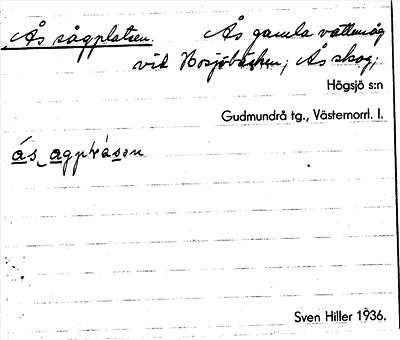 Ås sågplatsen. Ås gamla vattensåg
vid Bosjöbäcken; Ås skog;
Högsjö s:n
Gudmundrå tg., Västernorrl. l.
Sven Hiller 1936.